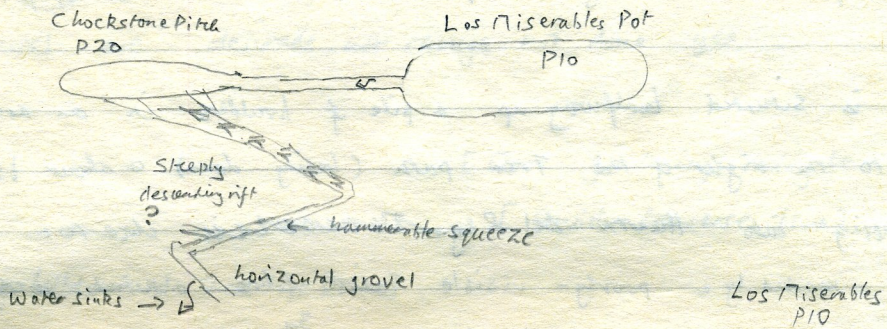 Chockstone Pitch
P20
Los Miserables Pot
P10
Steeply
descending rift
?
hammerable squeeze
horizontal grovel
Water sinks
Los Miserables
P10